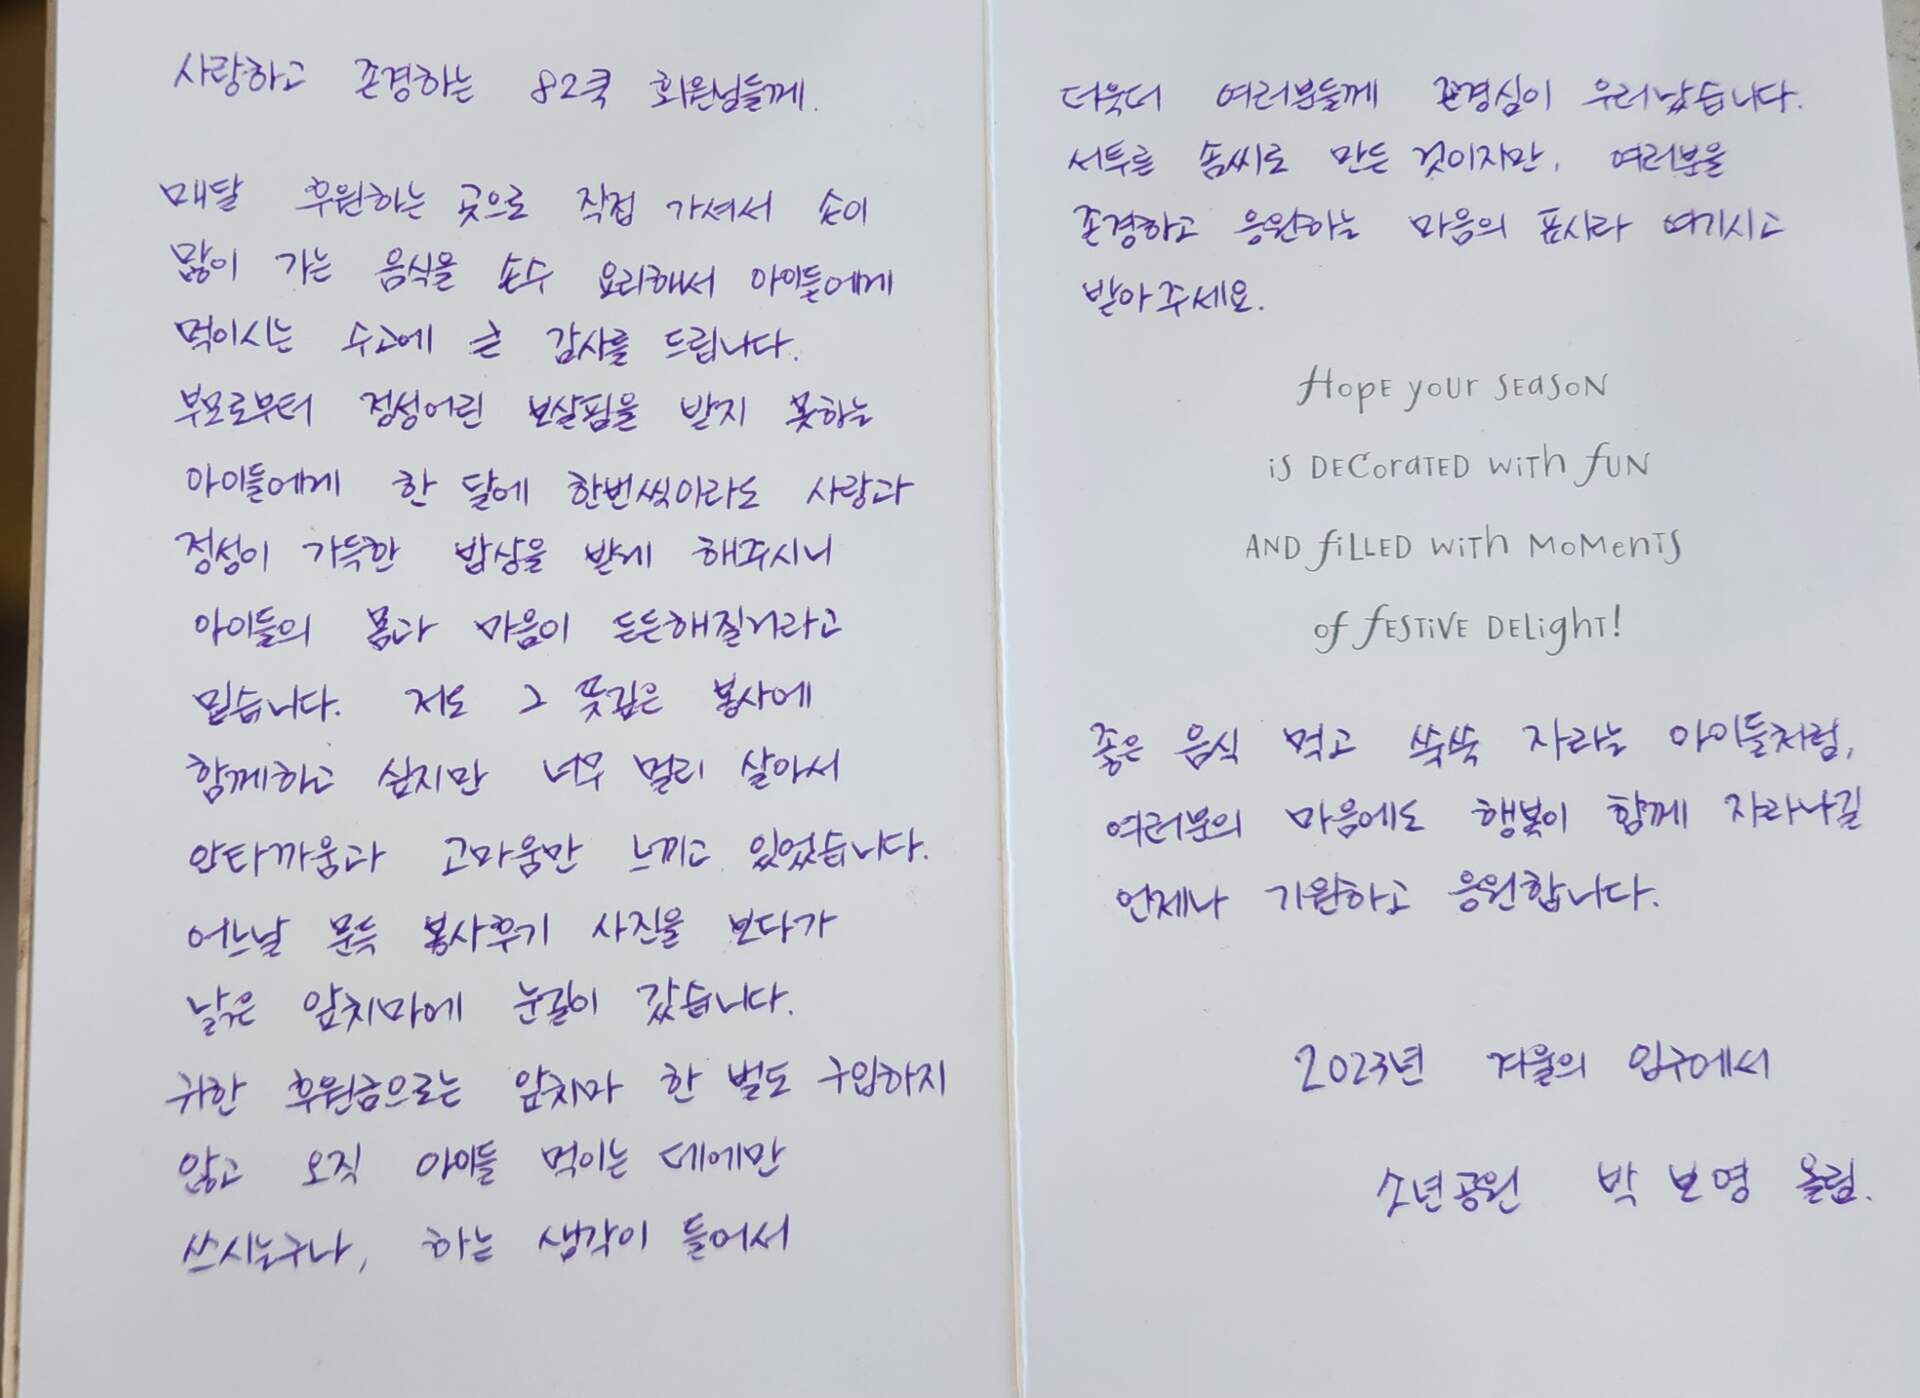 사랑하고 존경하는 82쿡 회원님들께.
매달 후원하는 곳으로 직접 가셔서 손이
많이 가는 음식을 손수 요리해서 아이들에게
먹이시는 수고에 큰 감사를 드립니다.
부모로부터 정성어린 보살핌을 받지 못하는
아이들에게 한 달에 한번씩이라도 사랑과
정성이 가득한 밥상을 받게 해주시니
아이들의 몸과 마음이 든든해질거라고
믿습니다. 저도 그 뜻깊은 봉사에
함께하고 싶지만 너무 멀리 살아서
안타까움과 고마움만 느끼고 있었습니다.
어느날 문득 봉사후기 사진을 보다가
낡은 앞치마에 눈길이 갔습니다.
귀한 후원금으로는 앞치마 한 벌도 구입하지
않고 오직 아이들 먹이는 데에만
쓰시는구나, 하는 생각이 들어서
더욱더 여러분들께 존경심이 우러났습니다.
서투른 솜씨로 만든 것이지만, 여러분을
존경하고 응원하는 마음의 표시라 여기시고
받아주세요.
Hope your season
is decorated with fun
and filled with moments
of festive delight!
좋은 음식 먹고 쑥쑥 자라는 아이들처럼,
여러분의 마음에도 행복이 함께 자라나길
언제나 기원하고 응원합니다.
2023년 겨울의 입구에서
소년공원 박 보영 올림.